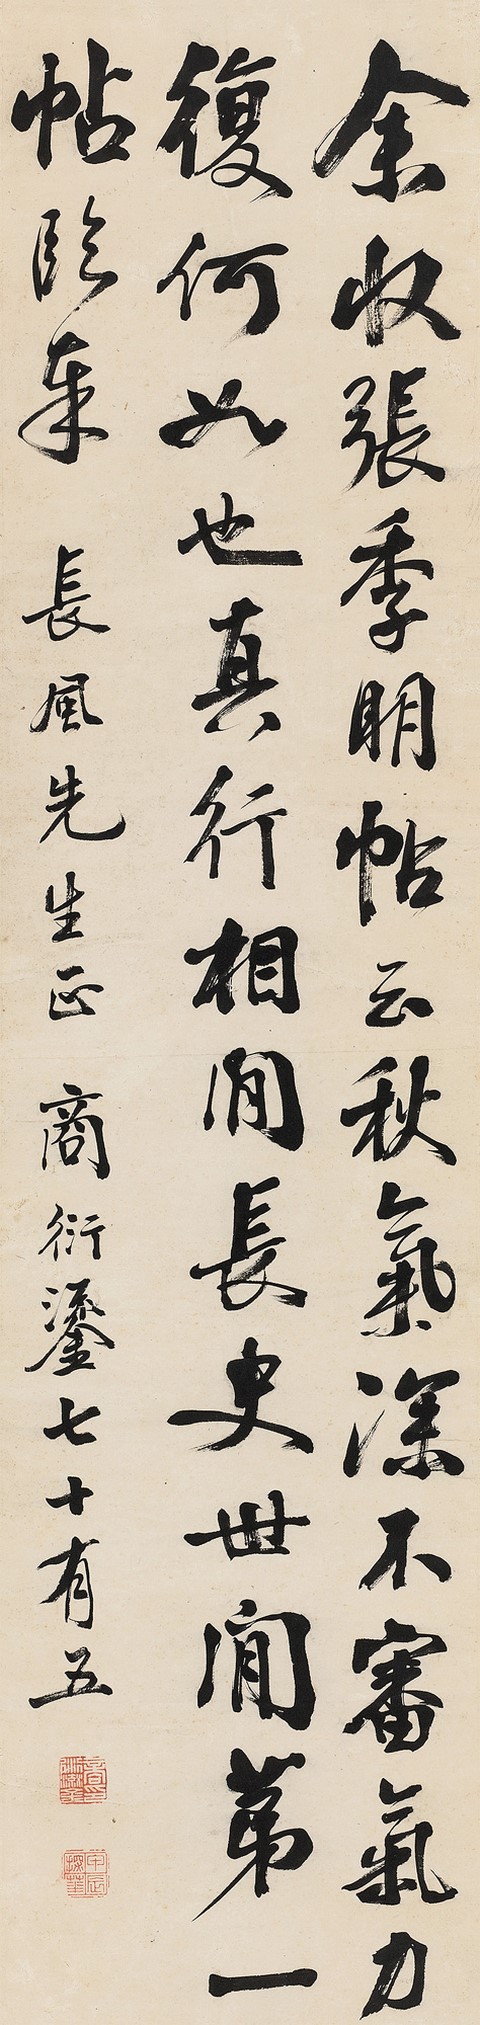 余收張季明帖云秋氣深不審氣力
復何如也真行相間長史世間第一
帖臨奉 長風先生正 商衍鎏七十有五
商衍鎏印
甲辰探花